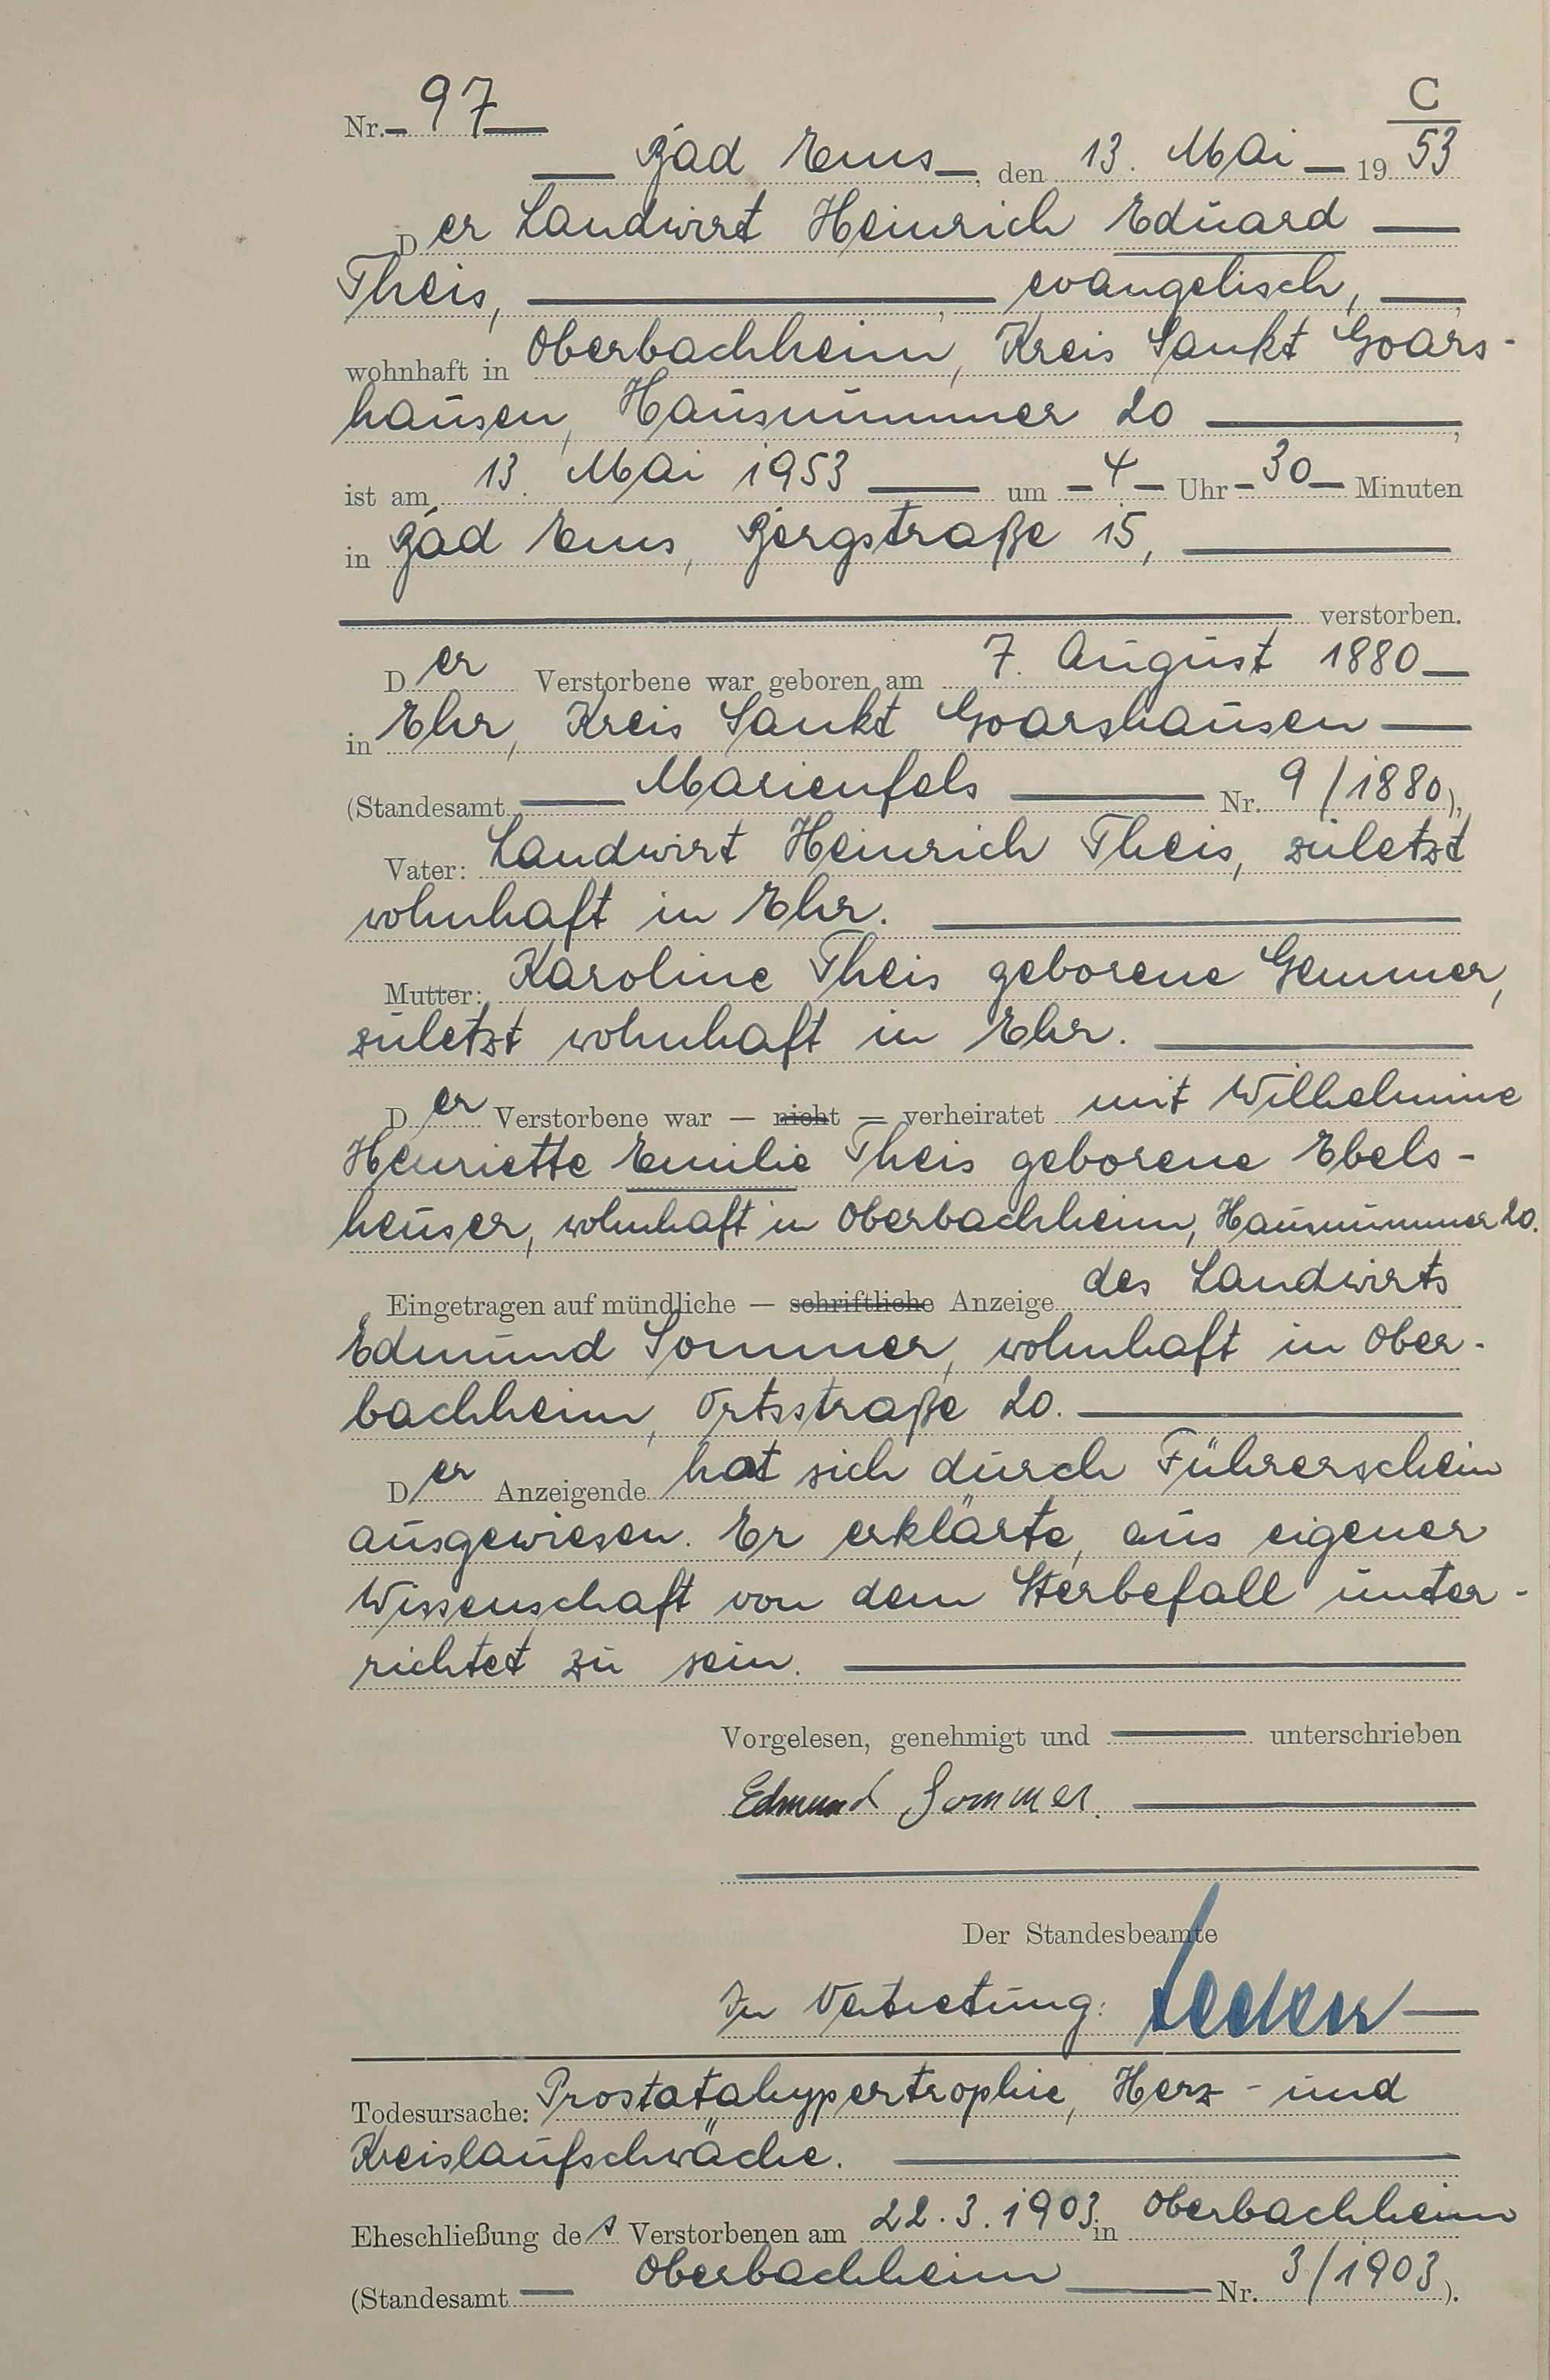 C
Nr. 97
Bad Ems, den 13. Mai 1953
Der Landwirt Heinrich Eduard
Theis, evangelisch,
wohnhaft in Oberbachheim, Kreis Sankt Goars-
hausen, Hausnummer 20,
ist am 13. Mai 1953 um 4 Uhr 30 Minuten
in Bad Ems, Bergstraße 15,
verstorben.
Der Verstorbene war geboren am 7. August 1880
in Ehr, Kreis Sankt Goarshausen
(Standesamt Marienfels Nr. 9/1880),
Vater: Landwirt Heinrich Theis, zuletzt
wohnhaft in Ehr.
Mutter: Karoline Theis geborene Gemmer,
zuletzt wohnhaft in Ehr.
Der Verstorbene war — nicht — verheiratet mit Wilhelmine
Henriette Emilie Theis geborene Ebels-
heuser, wohnhaft in Oberbachheim, Hausnummer 20.
Eingetragen auf mündliche — schriftliche Anzeige des Landwirts
Edmund Sommer, wohnhaft in Ober-
bachheim, Ortsstraße 20.
Der Anzeigende hat sich durch Führerschein
ausgewiesen. Er erklärte, aus eigener
Wissenschaft von dem Sterbefall unter-
richtet zu sein.
Vorgelesen, genehmigt und unterschrieben
Edmund Sommer.
Der Standesbeamte
In Vertretung:
Todesursache: Prostatahypertrophie, Herz- und
Kreislaufschwäche.
Eheschließung des Verstorbenen am 22.3.1903 in Oberbachheim
(Standesamt Oberbachheim Nr. 3/1903).